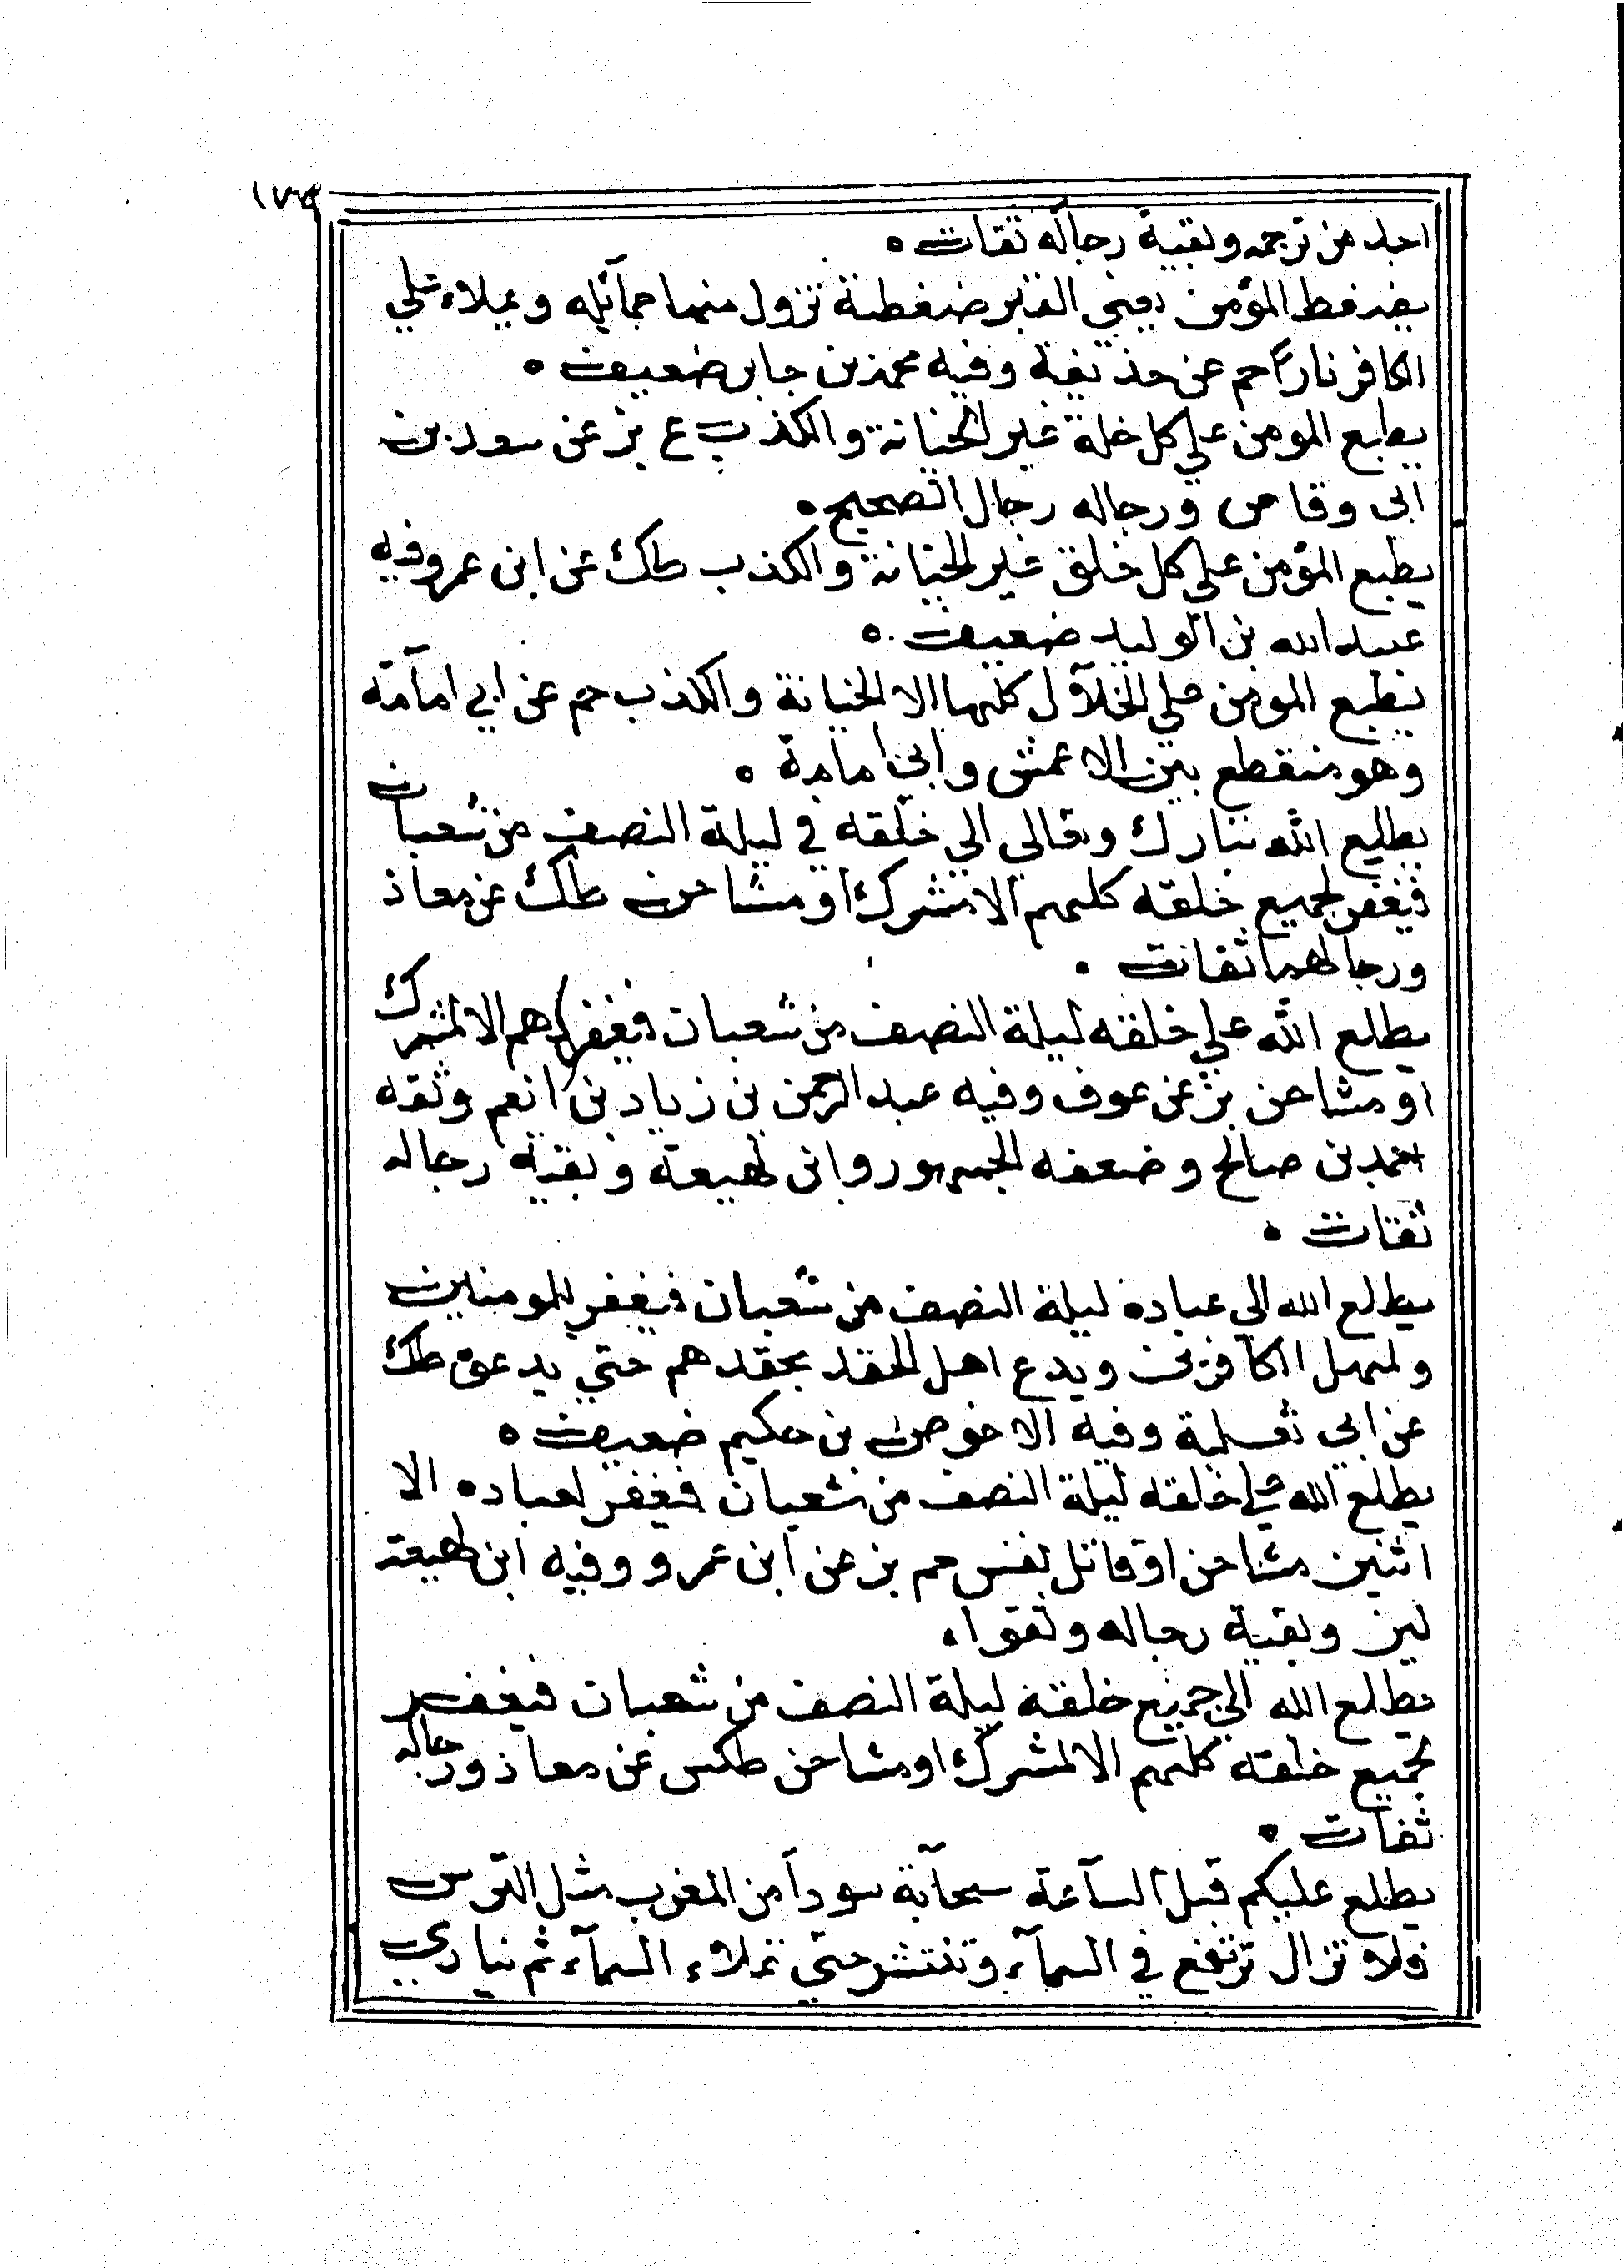 اجد من ترجمه وبقية رجاله ثقات ه
يضغط المؤمن يعني القبر ضغطة تزول منها حمائله ويملاء علي
الكافر نارا حم عن حذيفة وفيه محمد بن جابر ضعيف ه
يطبع المومن علي كل خلة غير الخيانة والكذب ع بز عن سعد بن
ابى وقاص ورجاله رجال الصحيح ه
يطبع المؤمن علي كل خلق غير الخيانة والكذب طك عن ابن عمر وفيه
عبيد الله بن الوليد ضعيف ه
يطبع المومن علي الخلال كلها الا الخيانة والكذب حم عن ابي امامة
وهو منقطع بين الاعمش وابي امامة ه
يطلع الله تبارك وتعالي الي خلقه في ليلة النصف من شعبان
فيغفر لجميع خلقه كلهم الا مشرك او مشاحن طك عن معاذ
ورجالهما ثقات ه
يطلع الله علي خلقه ليلة النصف من شعبان فيغفر لهم الا لمشرك
او مشاحن بز عن عوف وفيه عبد الرحمن بن زياد بن انعم وثقه
احمد بن صالح وضعفه الجمهور وابن لهيعة وبقية رجاله
ثقات ه
يطلع الله الي عباده ليلة النصف من شعبان فيغفر للمومنين
ولمهل الكافرين ويدع اهل الحقد بحقدهم حتي يدعوه طك
عن ابي ثعلبة وفيه الاحوص بن حكيم ضعيف ه
يطلع الله علي خلقه ليلة النصف من شعبان فيغفر لعباده الا
اثنين مشاحن او قاتل نفس حم بز عن ابن عمرو وفيه ابن لهيعة
لين وبقية رجاله وثقوا ه
يطلع الله الي جميع خلقه ليلة النصف من شعبان فيغفر
لجميع خلقه كلهم الا لمشرك او مشاحن طكس عن معاذ ورجاله
ثقات ه
يطلع عليكم قبل الساعة سحابة سودا من المغرب مثل الترس
فلا تزال ترتفع في السماء وتنتشر حتي تملاء السماء ثم ينادي